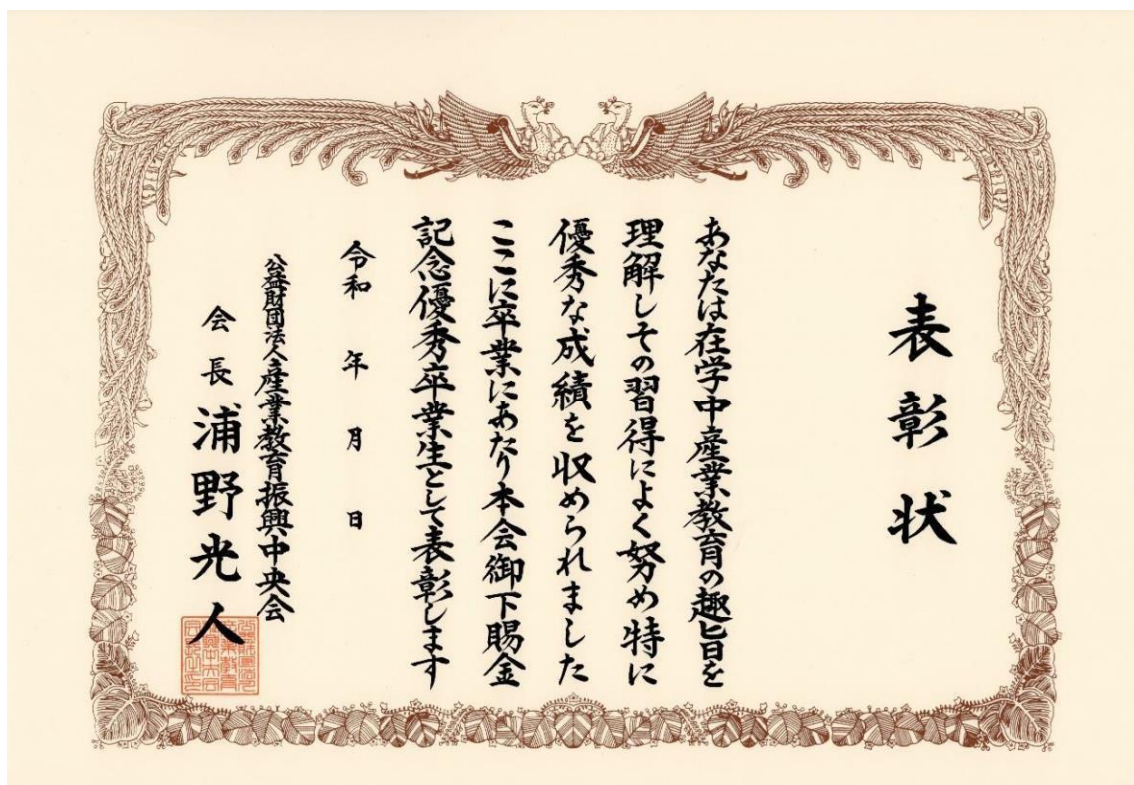 表彰状
あなたは在学中産業教育の趣旨を
理解しその習得によく努め特に
優秀な成績を収められました
ここに卒業にあたり本会御下賜金
記念優秀卒業生として表彰します
令和 年 月 日
公益財団法人産業教育振興中央会
会長 浦野光人